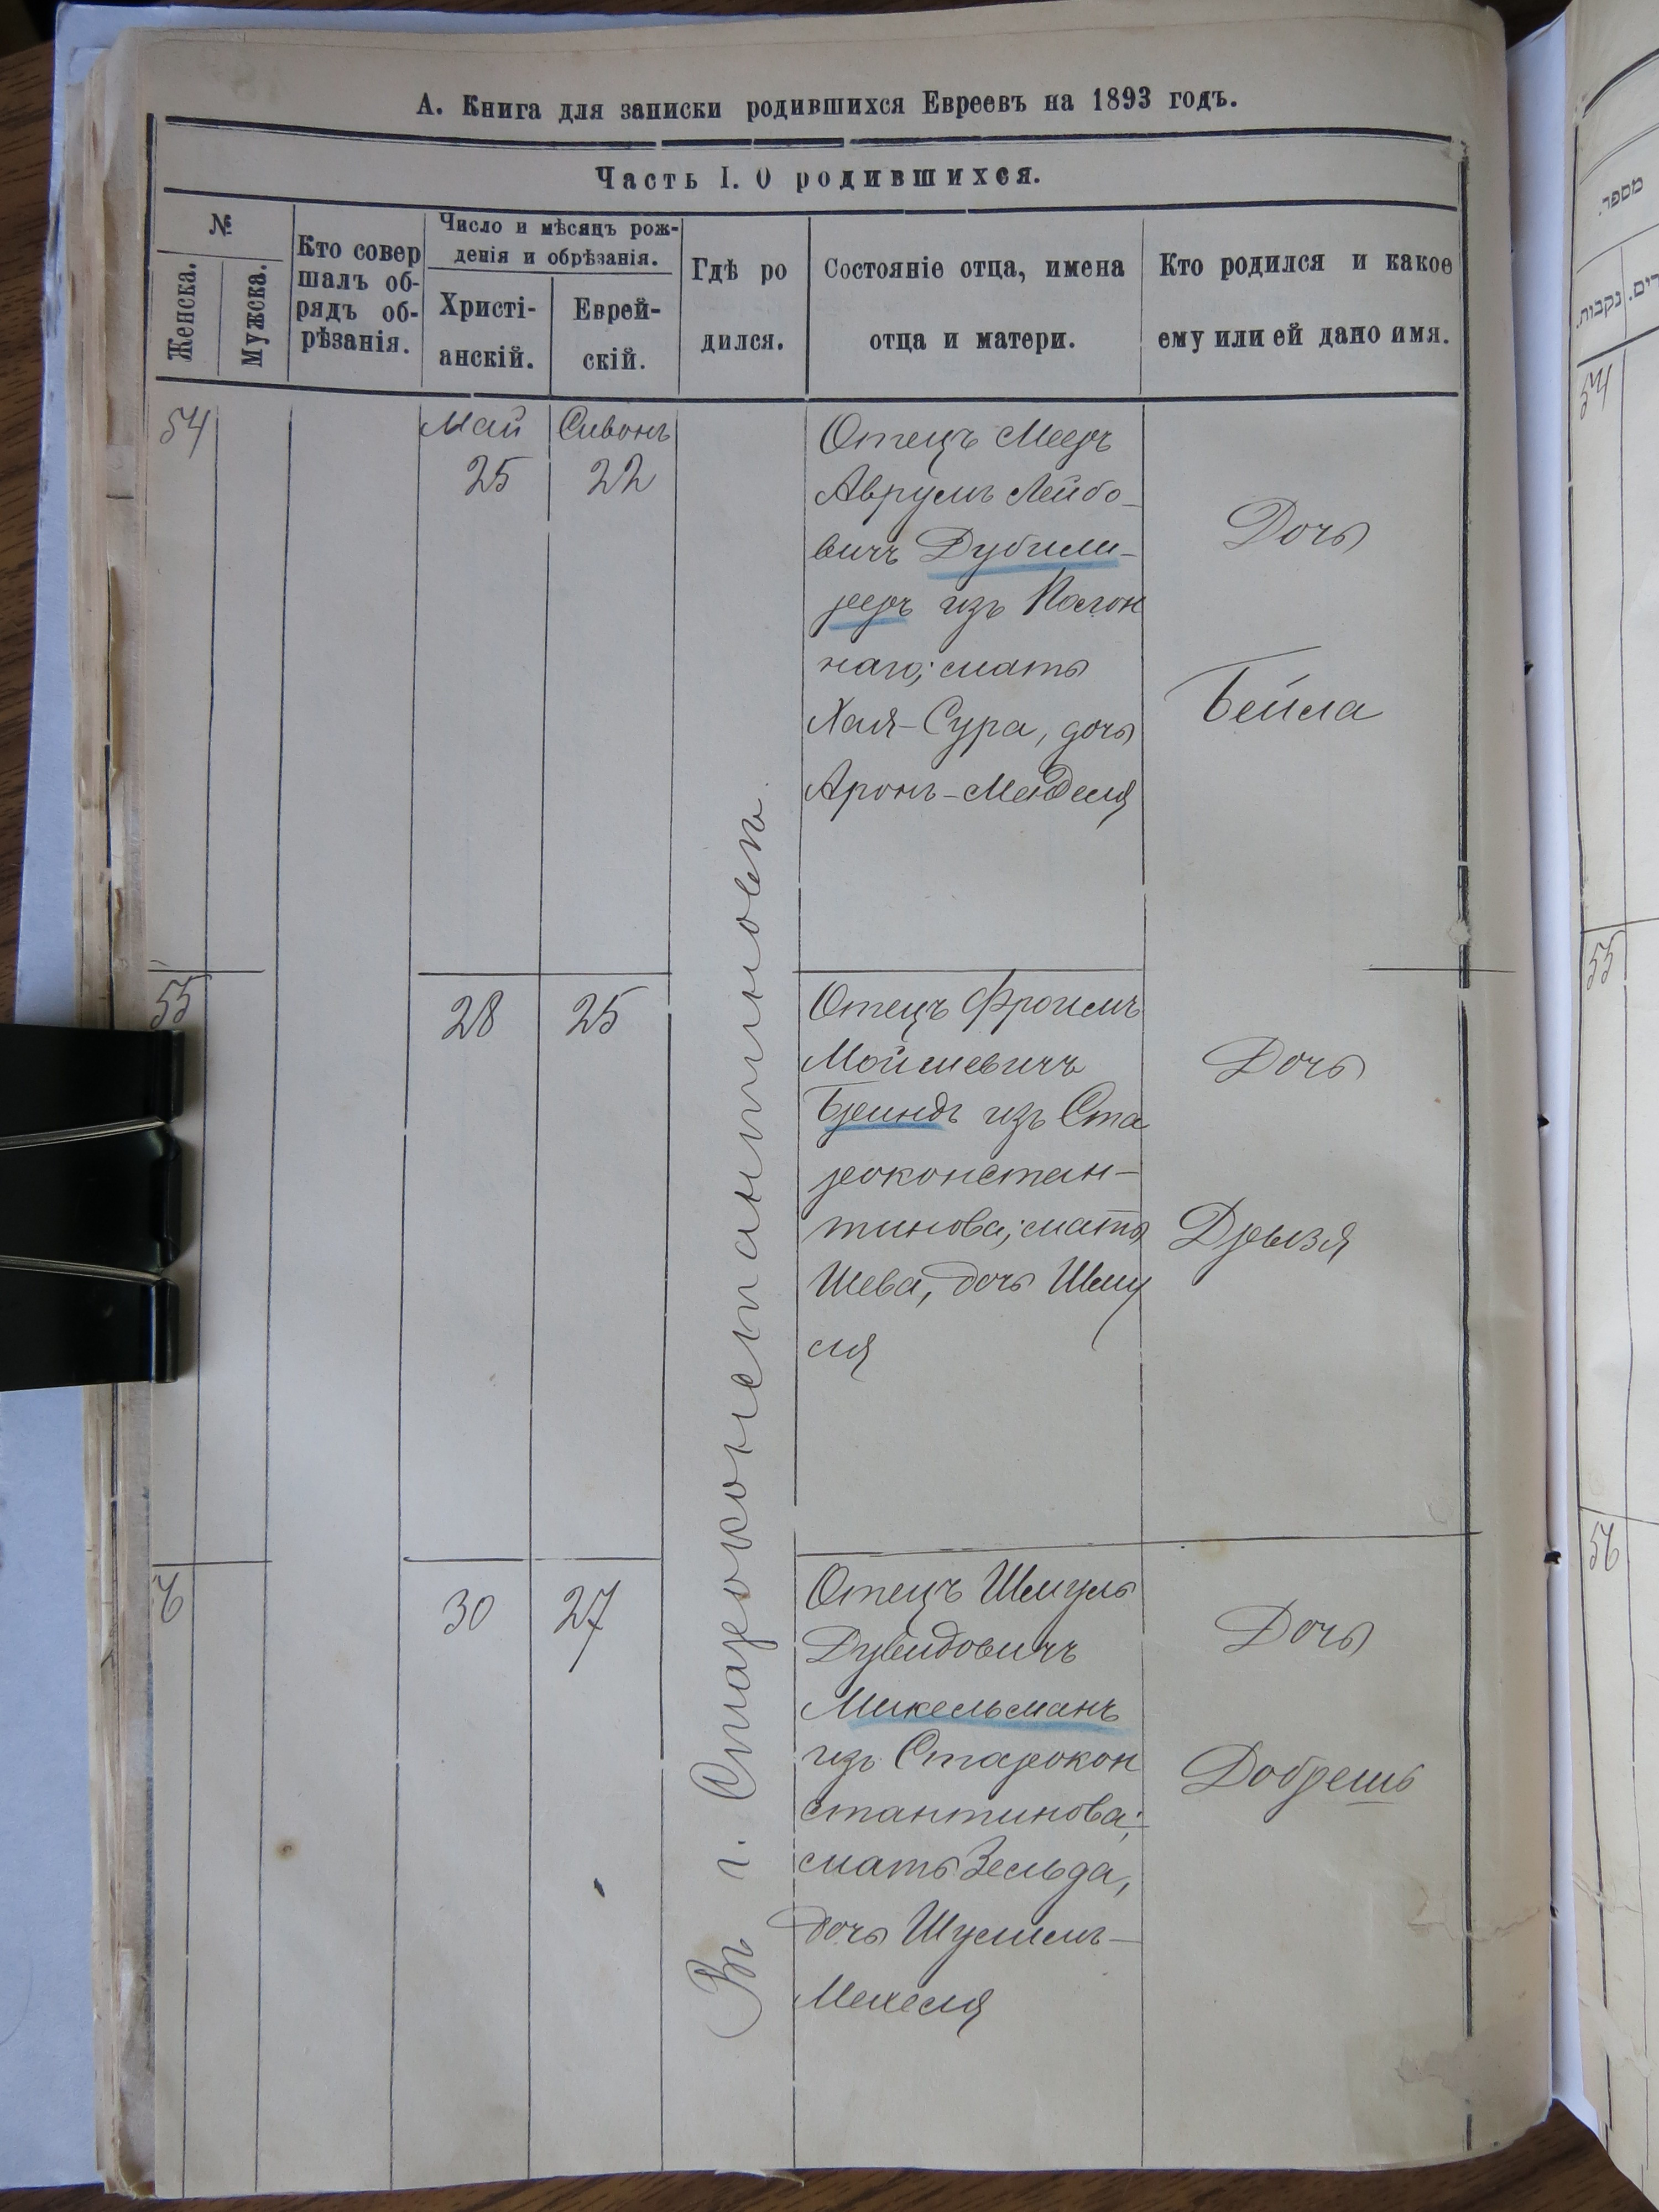 А. Книга для записки родившихся Евреевъ на 1893 годъ.
Часть I. О родившихся.
№
Женска.
Мужска.
Кто совер
шалъ об-
рядъ об-
рѣзанія.
Число и мѣсяцъ рож-
денія и обрѣзанія.
Христі-
анскій.
Еврей-
скій.
Гдѣ ро
дился.
Состояніе отца, имена
отца и матери.
Кто родился и какое
ему или ей дано имя.
54
Май
25
Сивонъ
22
Отецъ Меер
Аврумъ Лейбо-
вичъ Дубили-
реръ изъ
наго; мать
Хая-Сура, дочь
Аронъ-Менделя
Дочь
Бейла
Въ г. Староконстантиновѣ.
55
28
25
Отецъ Фроимъ
Мойшевичъ
Бриндъ изъ Ста
роконстан-
тинова; мать
Шева, дочь Шму
ля
Дочь
Дрызя
6
30
27
Отецъ Шмуль
Дувидовичъ
Микельманъ
изъ Старокон
стантинова;
мать Зельда,
дочь Шулимъ-
Мехеля
Дочь
Добришь
מספר.
נקבות.
54
55
56